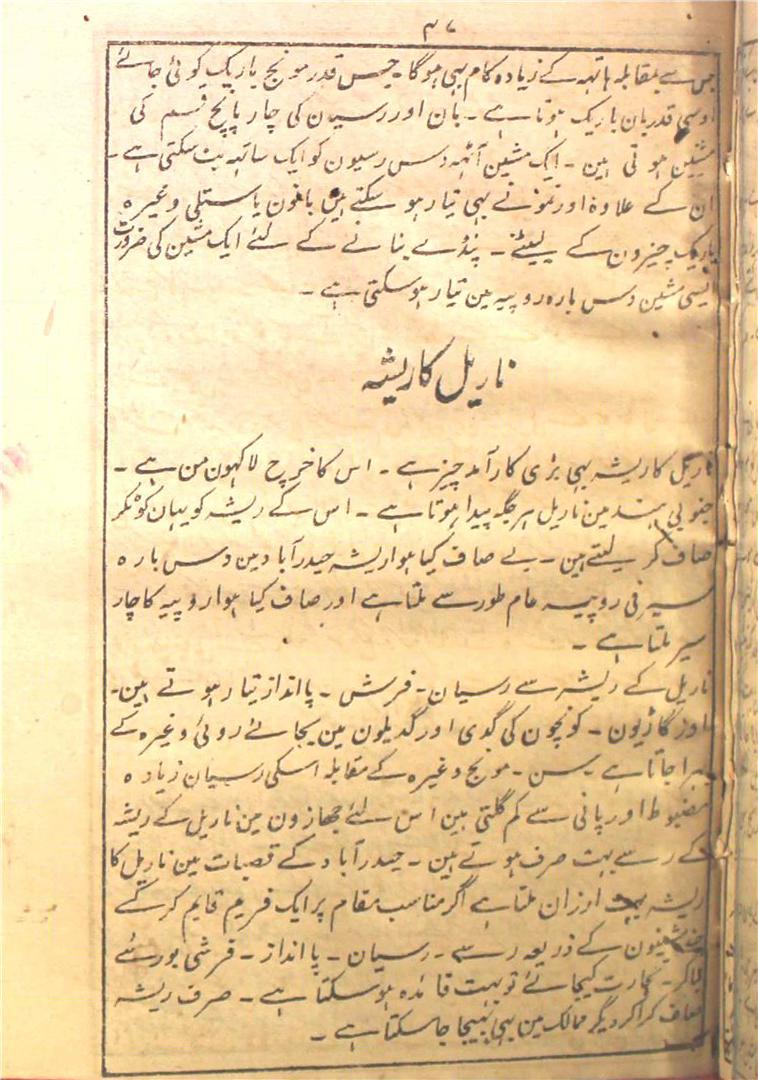 ۳۷
جس سے بمقابلہ ہاتہہ کے زیادہ کام بہی ہوگا۔ جس قدر مونج باریک کوٹی جائے
اوسی قدر بان باریک ہوتا ہے۔ بان اور رسیان کی چار پانچ قسم کی
مشین ہوتی ہین۔ ایک مشین آٹہہ دس رسیون کو ایک ساتہہ بٹ سکتی ہے۔
ان کے علاوہ اور نمونے بہی تیار ہو سکتے ہین بانون یا ستلی وغیرہ
باریک چیزون کے لیئے۔ پنڈے بنانے کے لئے ایک مشین کی ضرورت
ایسی مشین دس بارہ روپیہ مین تیار ہو سکتی ہے۔
ناریل کا ریشہ
ناریل کا ریشہ بہی بڑی کار آمد چیز ہے۔ اس کا خرچ لاکہون من ہے۔
جنوبی ہند مین ناریل ہر جگہ پیدا ہوتا ہے۔ اس کے ریشہ کو یہان کوٹکر
صاف کر لیتے ہین۔ بے صاف کیا ہوا ریشہ حیدرآباد مین دس بارہ
سیر فی روپیہ عام طور سے ملتا ہے اور صاف کیا ہوا روپیہ کا چار
سیر ملتا ہے۔
ناریل کے ریشہ سے رسیان۔ فرش۔ پا انداز تیار ہوتے ہین۔
اور گاڑیون۔ کونچون کی گدی اور گدیلون مین بجائے روئی وغیرہ کے
بہرا جاتا ہے۔ سن۔ مونج وغیرہ کے مقابلہ اسکی رسیان زیادہ
مضبوط اور پانی سے کم گلتی ہین اس لئے جہازون مین ناریل کے ریشہ
کے رسے بہت صرف ہوتے ہین۔ حیدرآباد کے قصبات مین ناریل کا
ریشہ بہت ارزان ملتا ہے اگر مناسب مقام پر ایک فریم قایم کرکے
مشینون کے ذریعہ رسے۔ رسیان۔ پا انداز۔ فرشی بورئے
بناکر۔ تجارت کیجائے تو بہت فائدہ ہو سکتا ہے۔ صرف ریشہ
صاف کراکر دیگر ممالک مین بہی بہیجا جا سکتا ہے۔